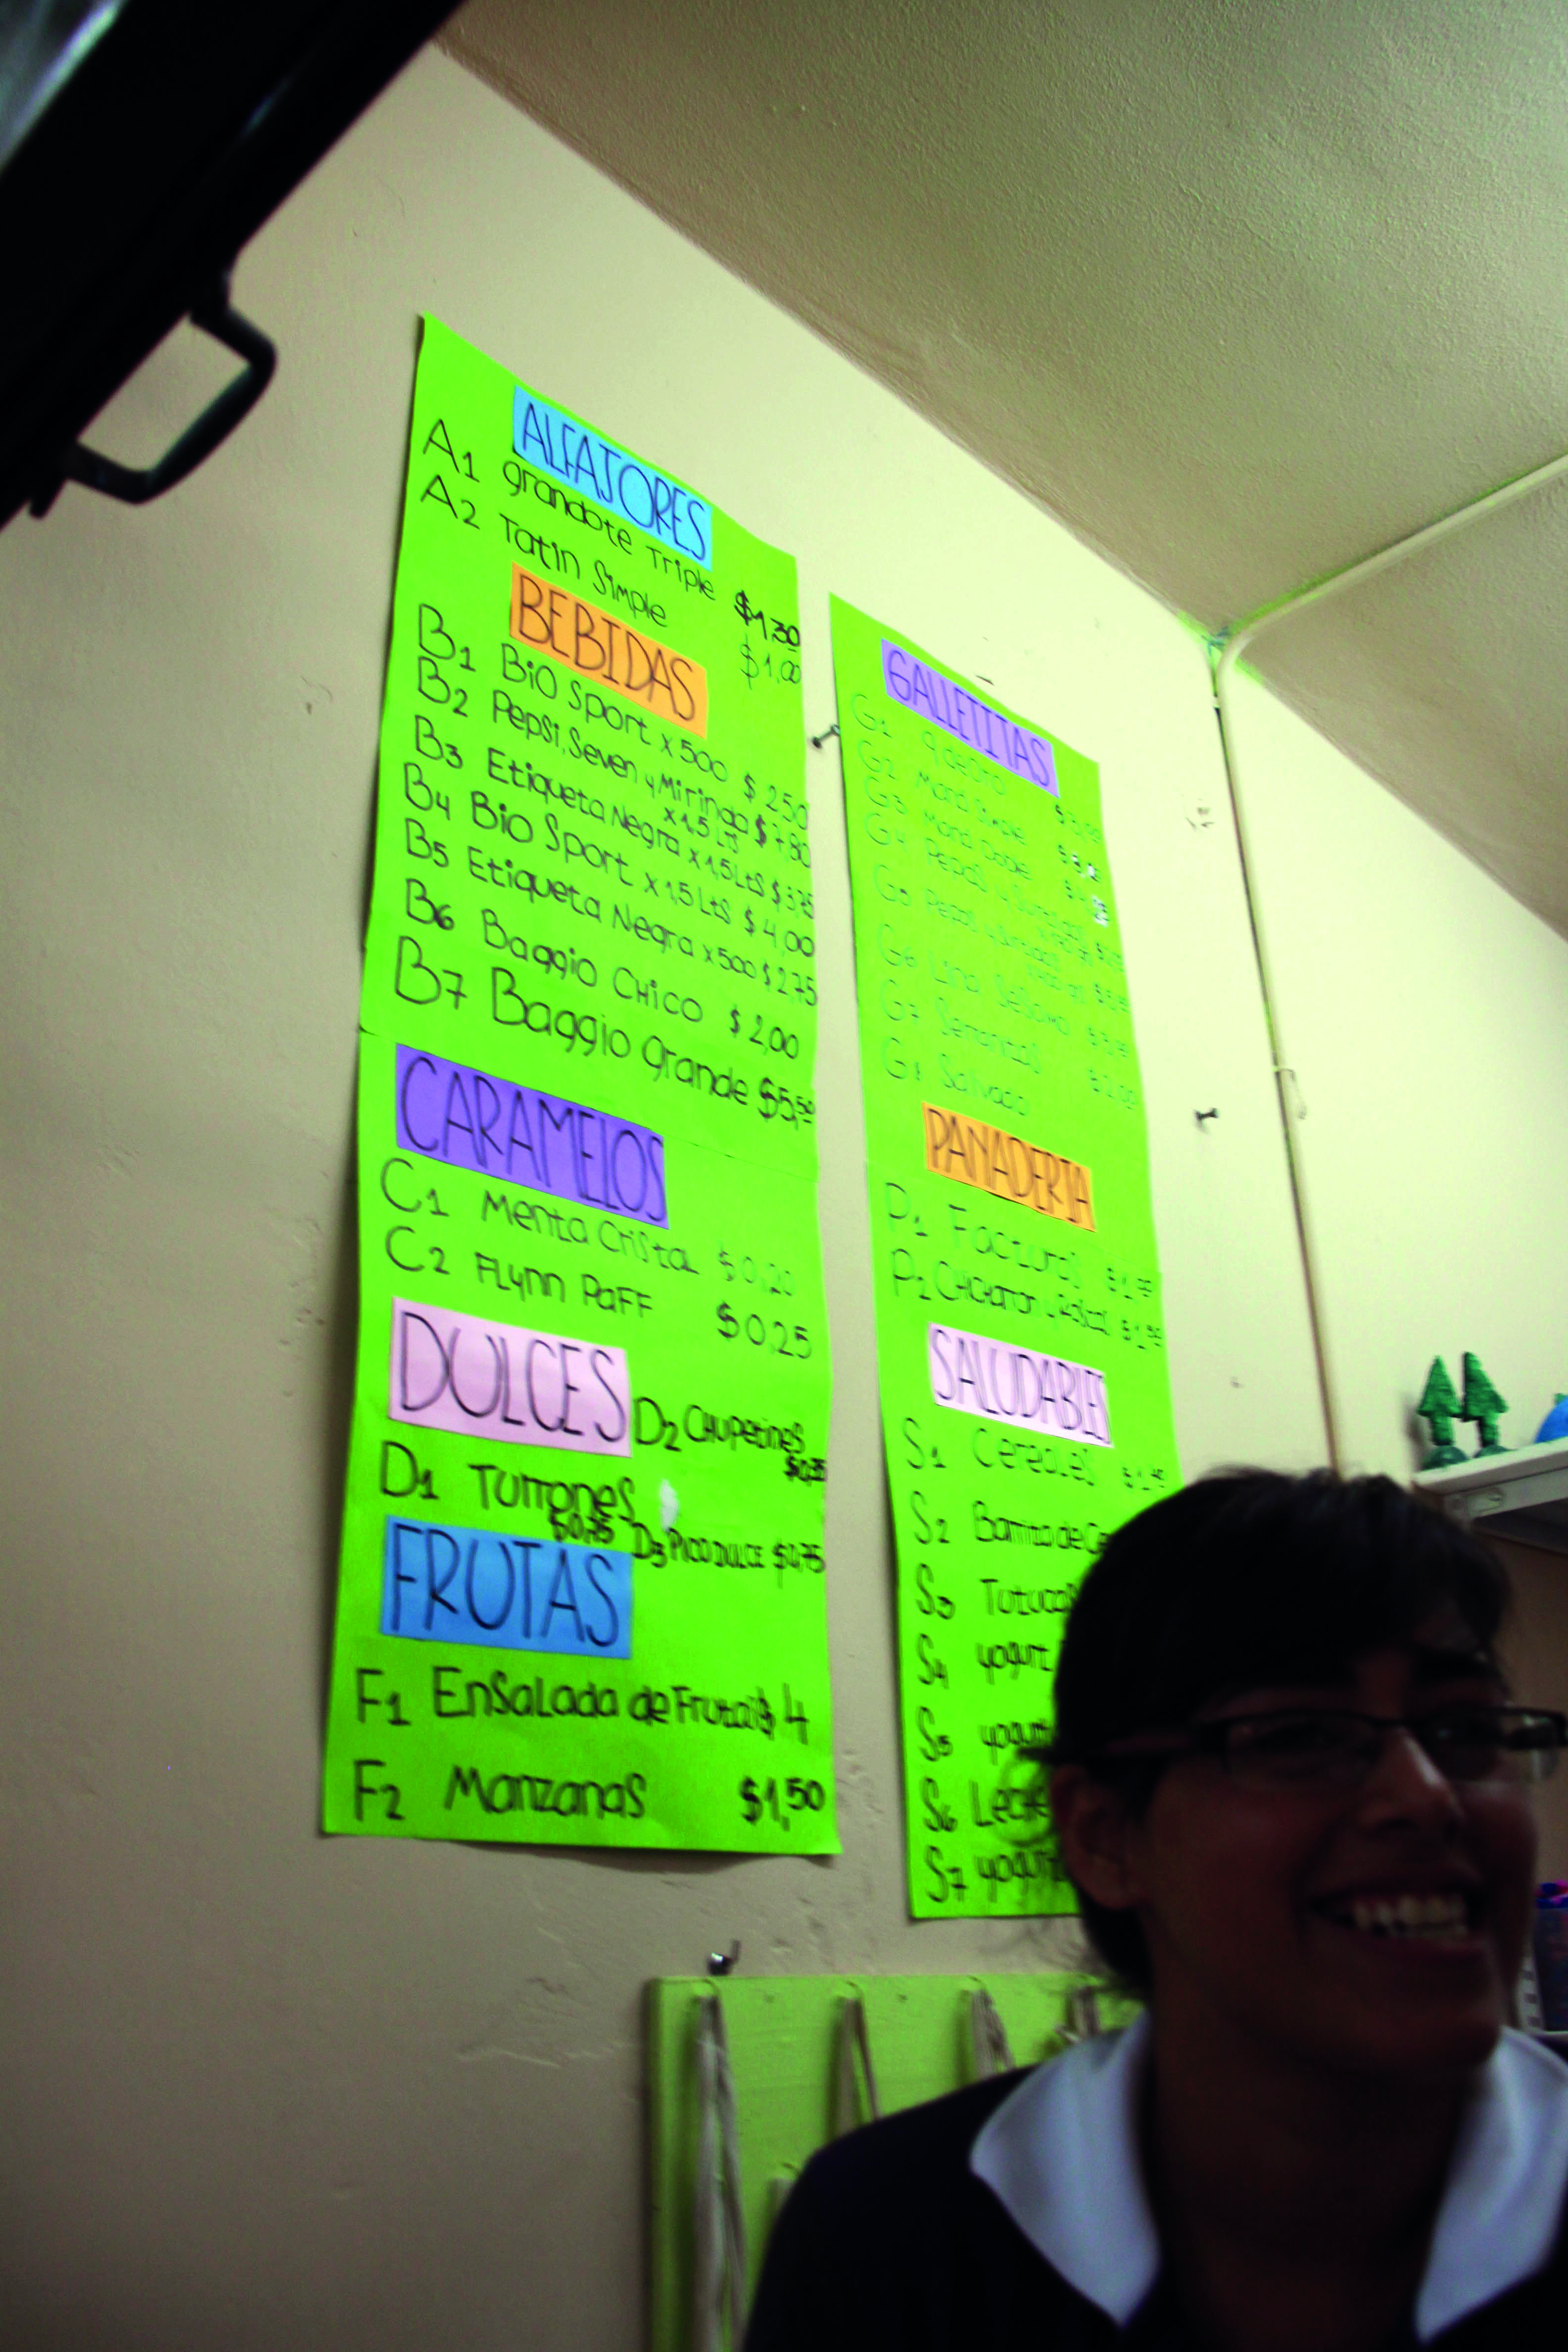 ALFAJORES
A1 grandote Triple $1,30
A2 Tatin Simple $1,00
BEBIDAS
B1 BiO Sport x 500 $ 250
B2 Pepsi, Seven y Mirinda $ 7,80
x 1,5 LTS
B3 Etiqueta Negra x 1,5 LtS $ 3,75
B4 BiO Sport x 1,5 LtS $ 4,00
B5 Etiqueta Negra x 500 $ 2,75
B6 Baggio CHico $ 2,00
B7 Baggio grande $5,50
CARAMELOS
C1 Menta Cristal $0,20
C2 FLynn PaFF $0,25
DULCES
D2 CHupetines
D1 Turrones
$0,75 D3 PICODULCE $0,75
FRUTAS
F1 EnSaLada de Frutas $ 4
F2 Manzanas $1,50
GALLETITAS
G1 9 de Oro
G2 Mana Simple
G3 Mana
G4 Pepas y Surtidas
G5 Pepas y Surtidas
G6 Lino Sesamo
G7
G8 Salvado
PANADERIA
P1 Facturas
P2
SALUDABLES
S1 Cereales
S2 Barrita de Ce
S3 Tutucas
S4 yogurt
S5 yogurt
S6 Leche
S7 yogurt